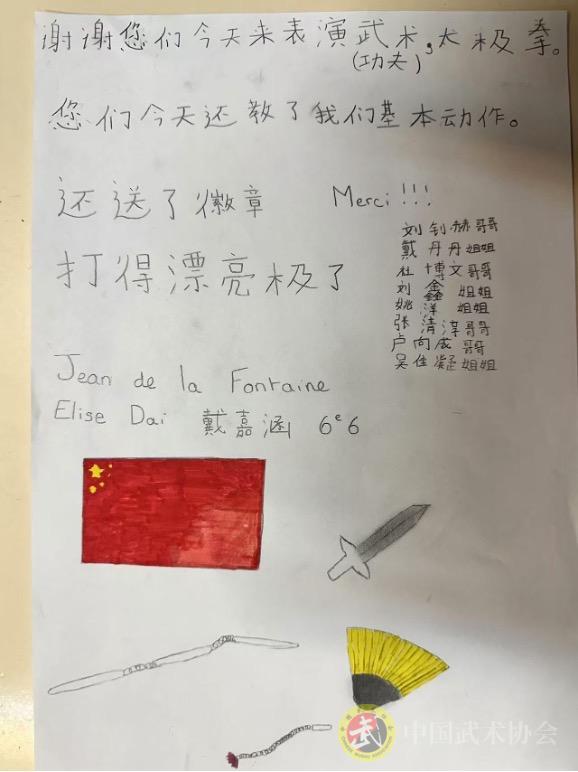 谢谢您们今天来表演武术,太极拳。
(功夫)
您们今天还教了我们基本动作。
还送了徽章
Merci !!!
打得漂亮极了
刘钊赫哥哥
戴丹丹姐姐
杜博文哥哥
刘鑫姐姐
姚洋姐姐
张清淳哥哥
卢向成哥哥
吴佳凝姐姐
Jean de la Fontaine
Elise Dai 戴嘉涵 6e6
中国武术协会